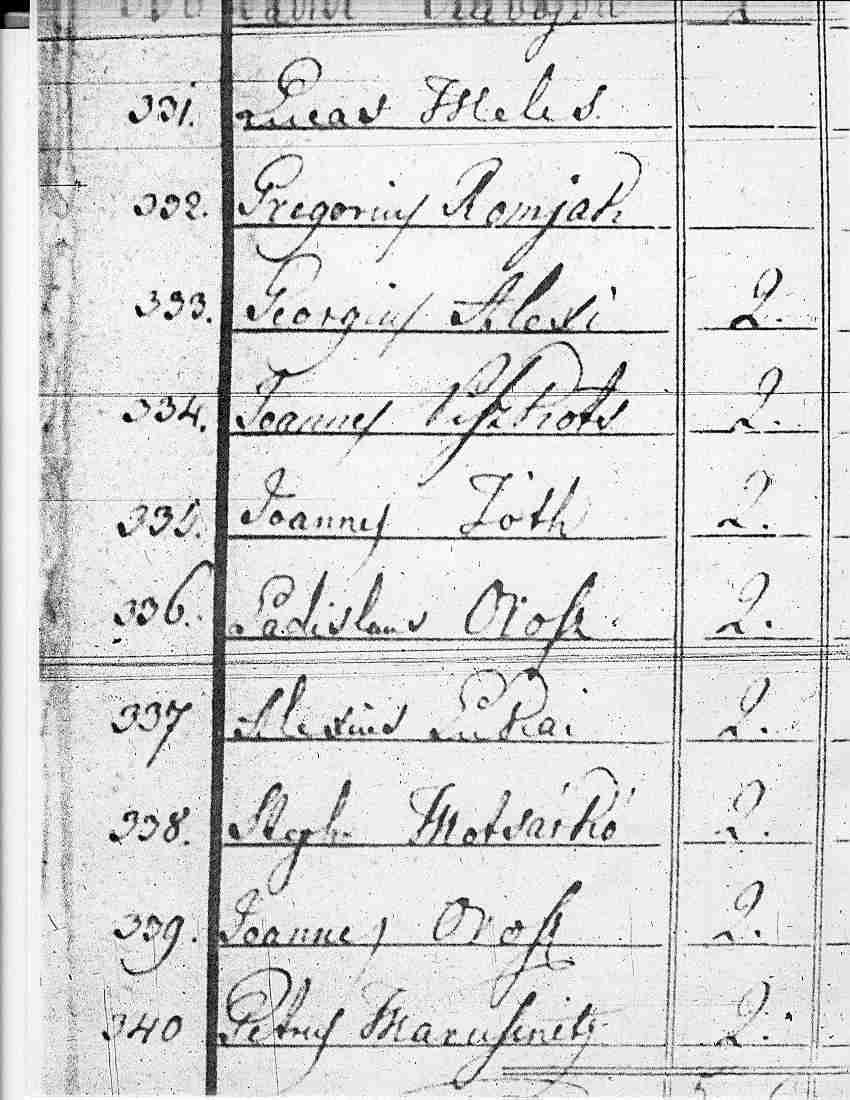 331. Lucas Meles
332. Gregorius Romjak
333. Georgius Alexi 2.
334. Joannes Piszkots 2.
335. Joannes Tóth 2.
336. Ladislaus Orosz 2.
337 Alexius Lukai 2.
338. Steph. Motsárkó 2.
339. Joannes Orosz 2.
340 Petrus Marusinitz 2.